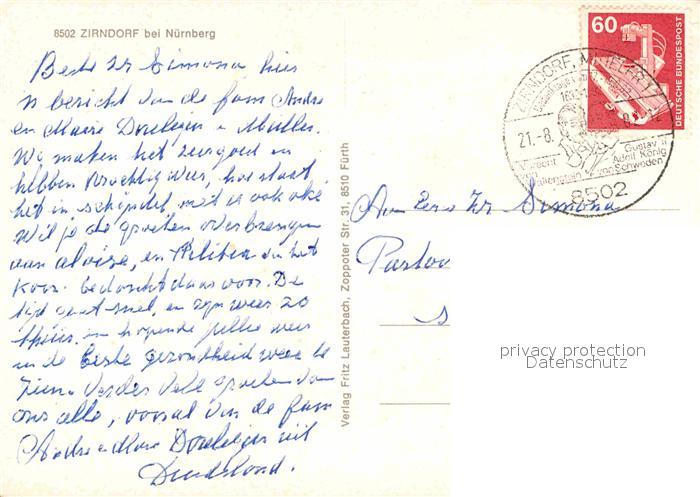 8502 ZIRNDORF bei Nürnberg
Beste Zr Simona hier
'n bericht van de fam Andre
en Marie
Wij maken het zeer goed en
hebben prachtig weer, hoe staat
het in Schijndel, met je ook oke
wil je de groeten overbrengen
van en het
koor. bedankt daar voor. De
tijd gaat snel, en zijn weer zo
thuis. en hopende jullie weer
in de beste gezondheid weer te
zien. Verder vele groeten van
ons alle, vooral van de fam
Andre en Marie uit
Duitsland.
Verlag Fritz Lauterbach, Zoppoter Str. 31, 8510 Fürth
60
DEUTSCHE BUNDESPOST
ZIRNDORF, MITTELFR 1
21.-8.
Gustav II
Adolf König
von Schweden
8502
Aan Eerw Zr Simona
privacy protection
Datenschutz